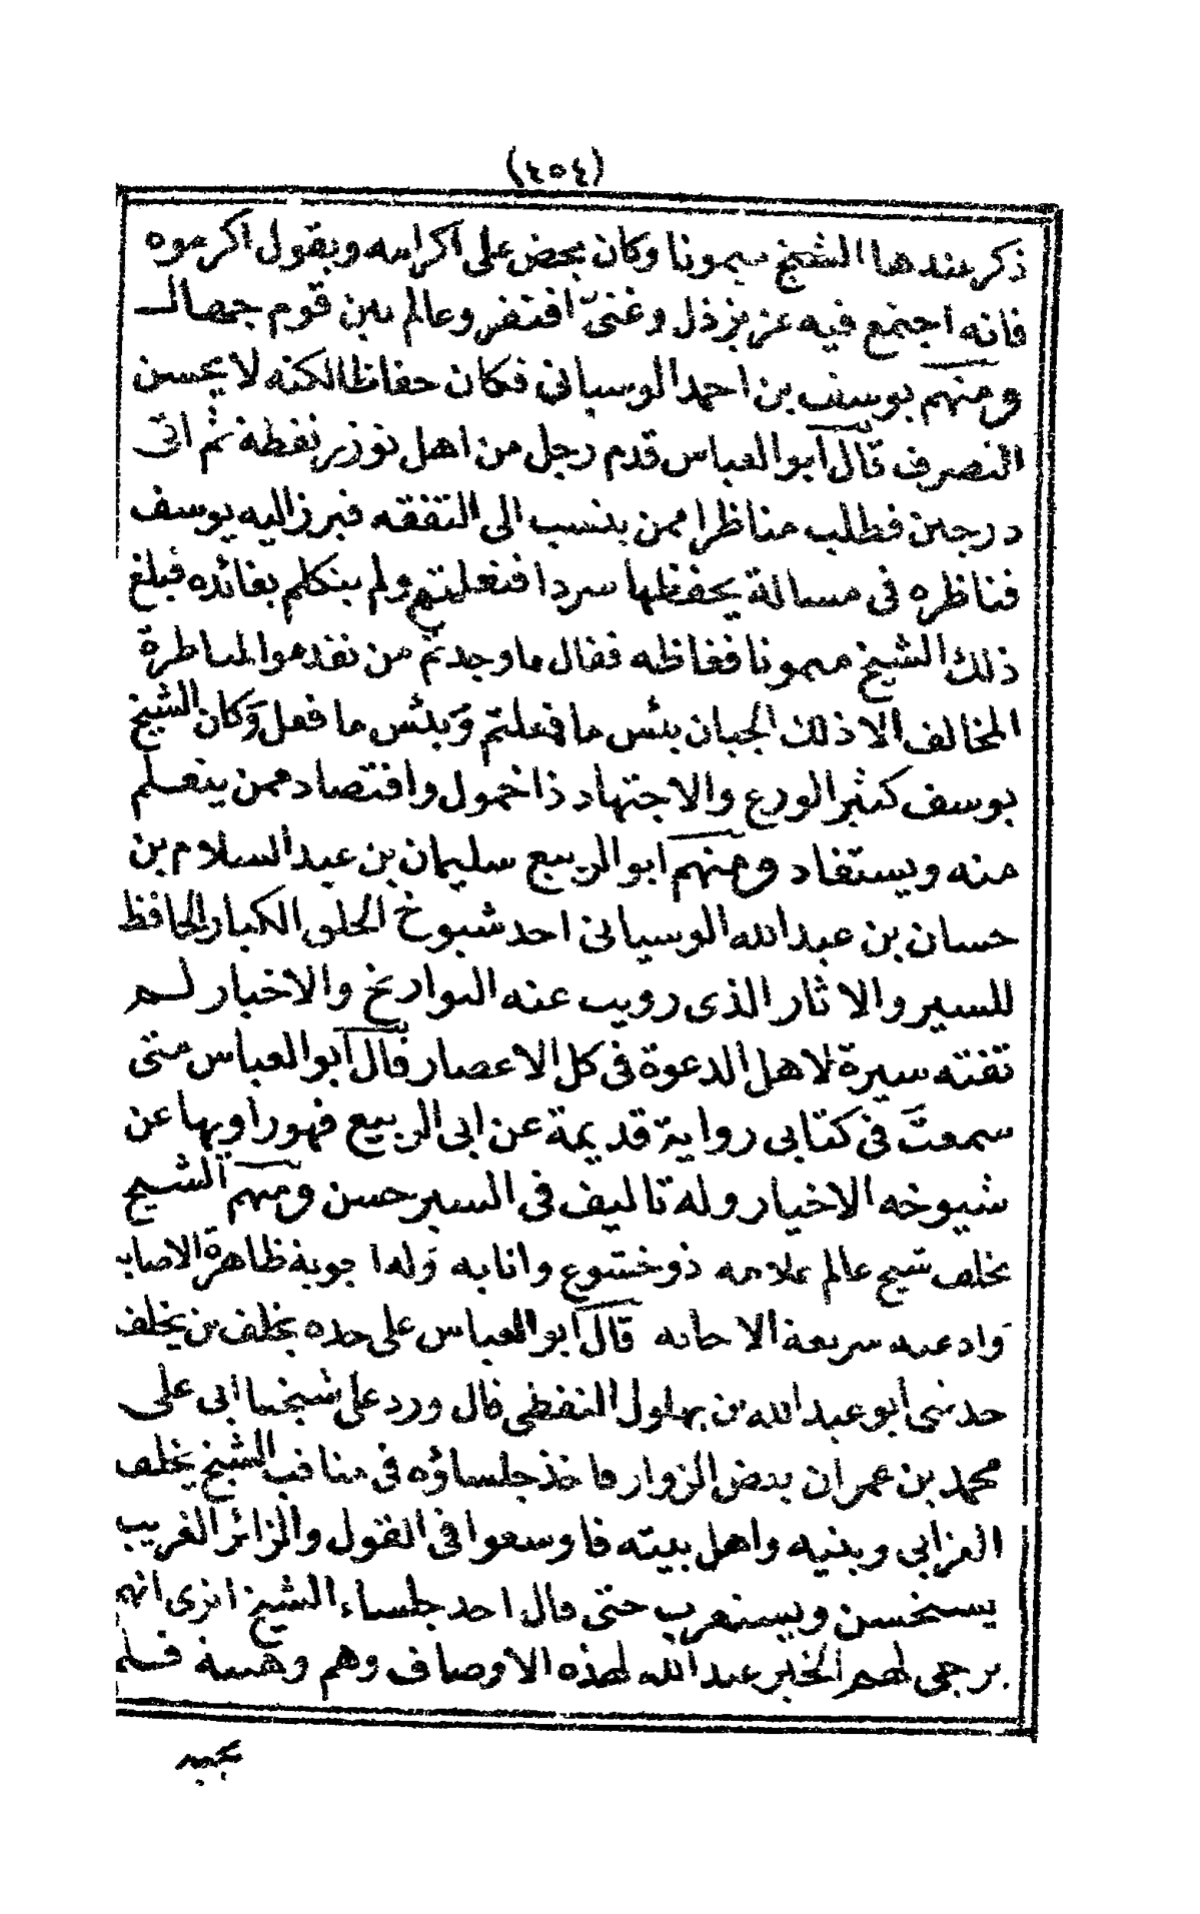 (٤٥٤)
ذكر عندها الشيخ ميمونا وكان يحض على اكرامه ويقول اكرموه
فانه اجتمع فيه عزيز ذل وغنىّ افتقر وعالم بين قوم جهال
ومنهم يوسف بن احمد الوسياني فكان حفاظا لكنه لا يحسن
التصرف قال ابو العباس قدم رجل من اهل توزر نفطة ثم اتى
درجين فطلب مناظرا ممن ينسب الى التفقه فبرز اليه يوسف
فناظره فى مسالة يحفظها سردا فتعلتم ولم يتكلم بفائده فبلغ
ذلك الشيخ ميمونا فغاظه فقال ما وجدتم من تقدموا لمناظرة
المخالف الا ذلك الجبان بئس ما فعلتم وبئس ما فعل وكان الشيخ
يوسف كثير الورع والاجتهاد ذا خمول واقتصاد ممن يتعلم
منه ويستفاد ومنهم ابو الربيع سليمان بن عبد السلام بن
حسان بن عبد الله الوسيانى احد شيوخ الحلق الكبار الحافظ
للسير والاثار الذى رويت عنه التواريخ والاخبار لم
تفته سيرة لاهل الدعوة فى كل الاعصار قال ابو العباس متى
سمعت فى كتابى رواية قديمة عن ابى الربيع فهو راويها عن
شيوخه الاخيار وله تاليف فى السير حسن ومنهم الشيخ
يخلف شيخ عالم علامه ذو خشوع وانابه وله اجوبة ظاهرة الاصابه
وادعيه سريعة الاجابه قال ابو العباس على جده يخلف بن يخلف
حدثنى ابو عبد الله بن بهلول النفطى قال ورد على شيخنا ابى على
محمد بن عمران بعض الزوار فاخذ جلساؤه فى مناقب الشيخ يخلف
العزابى وبنيه واهل بيته فاوسعوا فى القول والزائر الغريب
يستحسن ويستغرب حتى قال احد جلساء الشيخ اترى انهم
يرجى لهم الخير عبد الله لهذه الاوصاف وهم وهبية فسلم